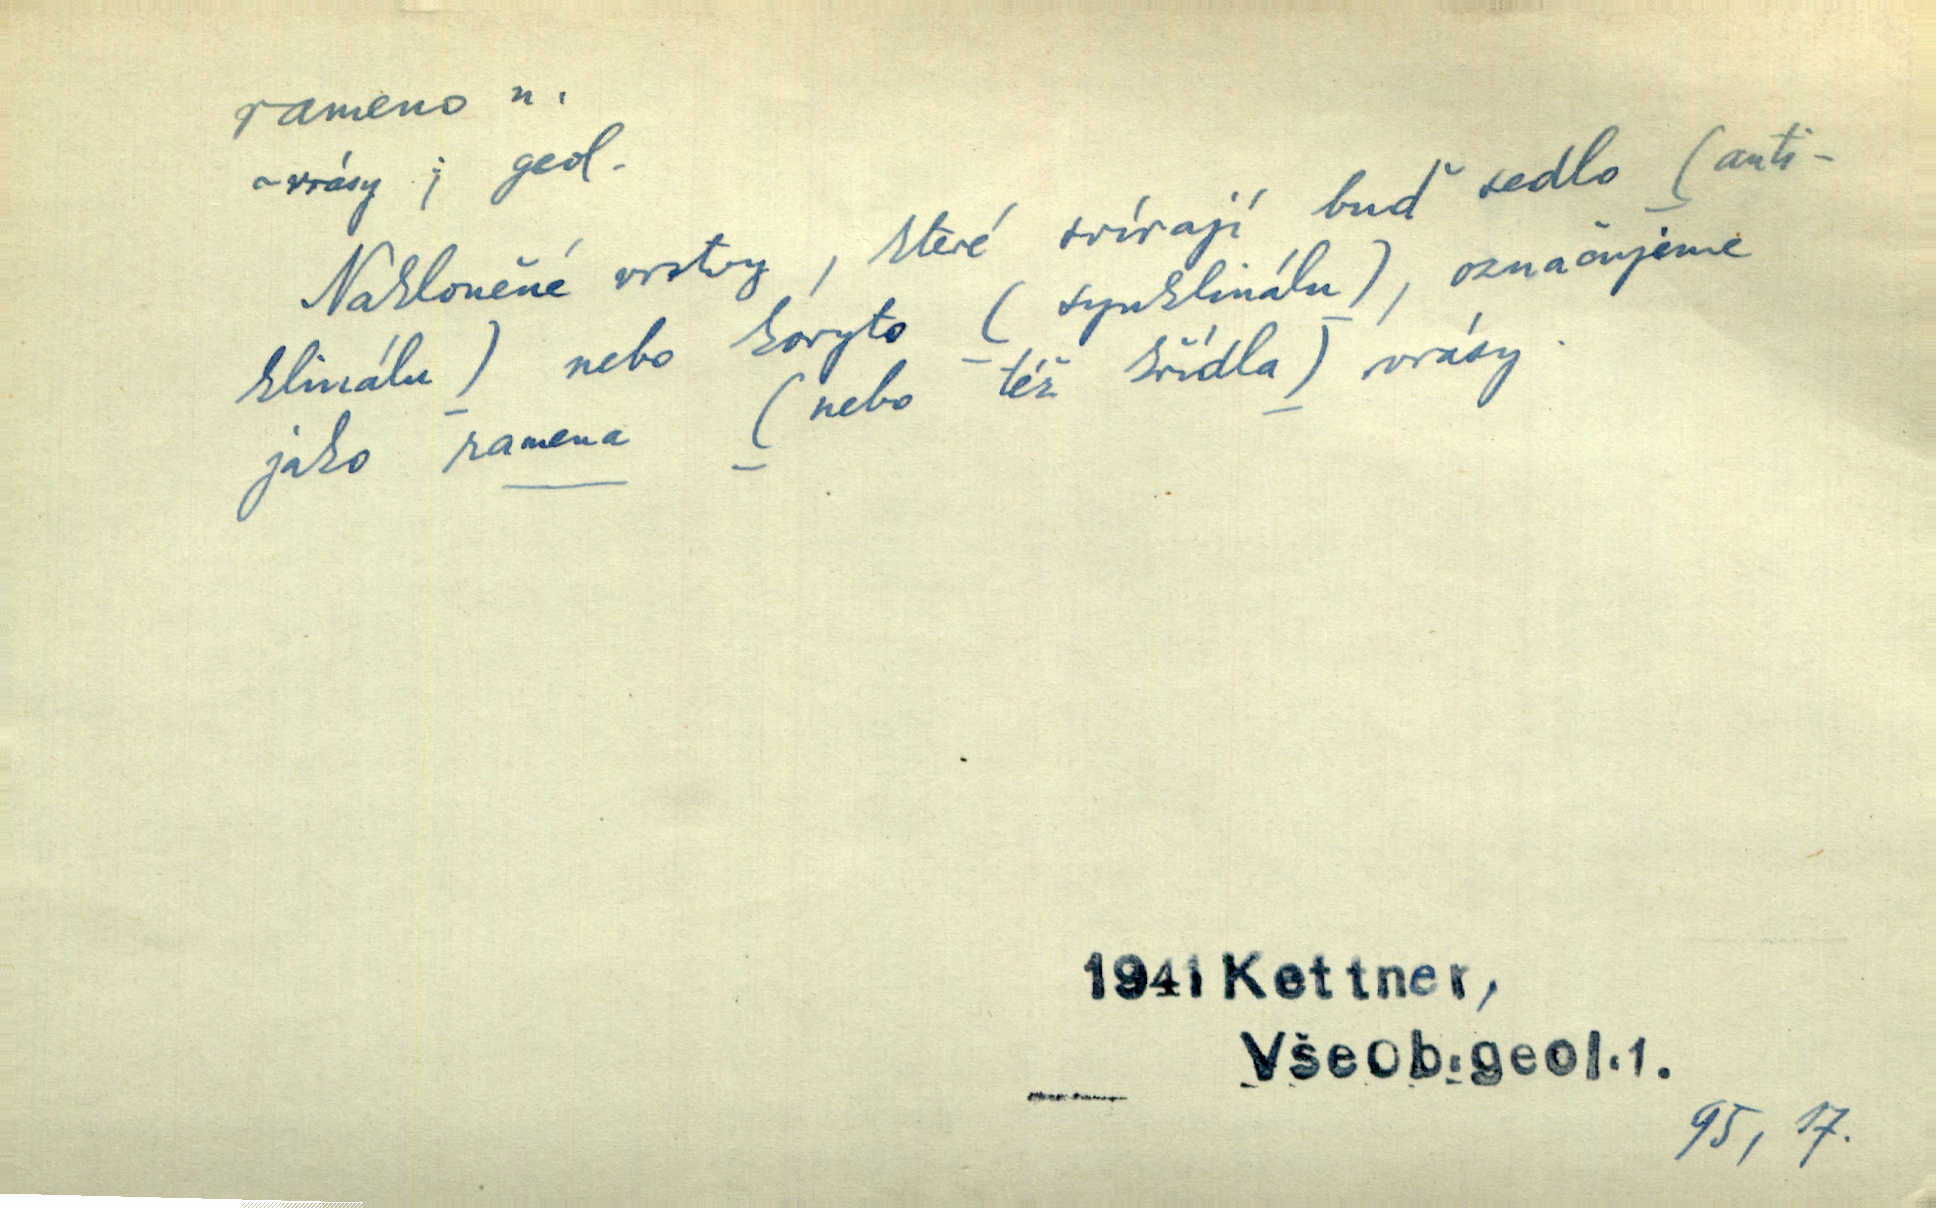 rameno n.
~ vrásy ; geol.
Nakloněné vrstvy, které svírají buď sedlo (anti-
klinálu) nebo koryto (synklinálu), označujeme
jako ramena (nebo též křídla) vrásy.
1941 Kettner,
Všeob.geol.1.
95, 17.